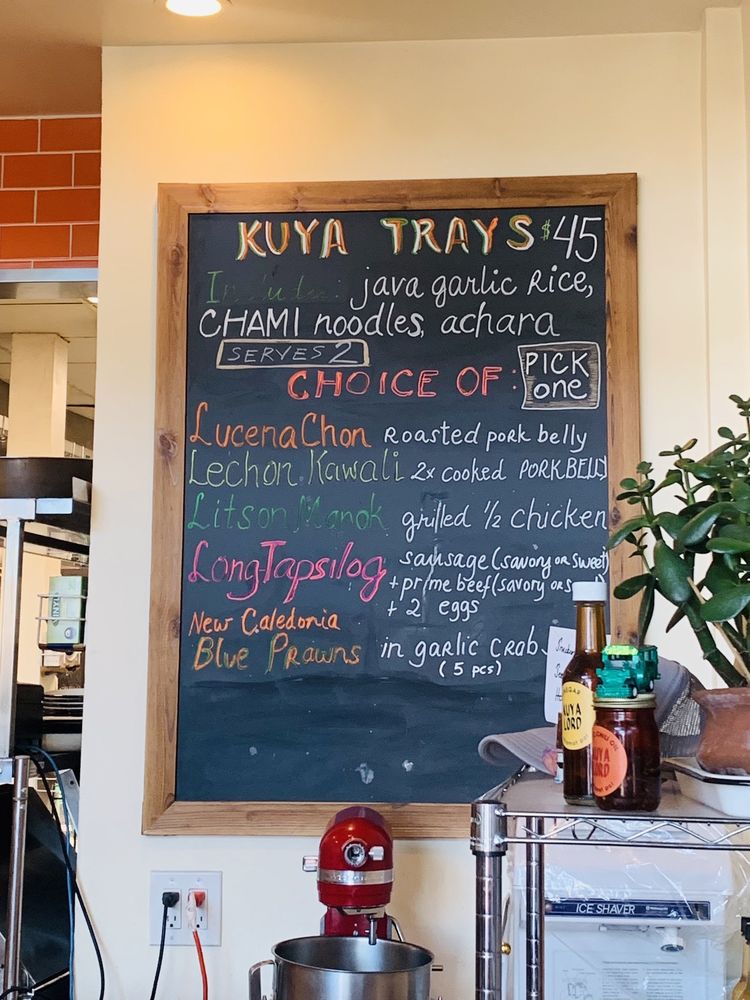 KUYA TRAYS $45
Includes: java garlic Rice,
CHAMI noodles, achara
SERVES 2
CHOICE OF: PICK one
LucenaChon Roasted pork belly
Lechon Kawali 2x cooked PORK BELLY
Litson Manok grilled 1/2 chicken
LongTapsilog sausage (savory or sweet)
+ prime beef (savory or
+ 2 eggs
New Caledonia
Blue Prawns in garlic crab
(5 pcs)
KUYA LORD
CHILI OIL
KUYA LORD
ICE SHAVER